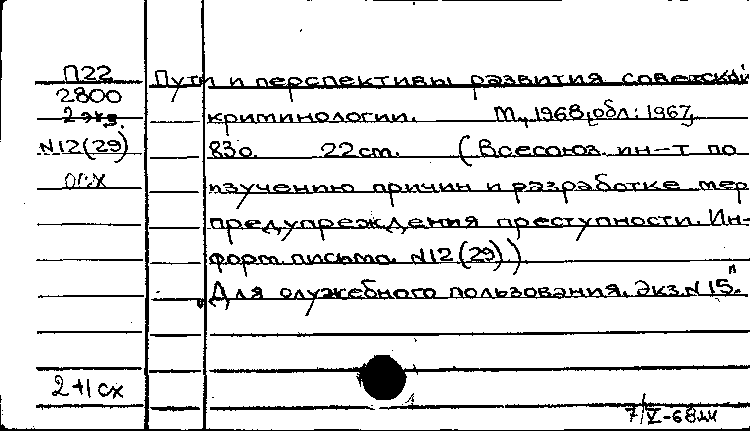 П22
2800
2 экз.
N12(29)
Пути и перспективы развития советской
криминологии. М., 1968, [обл: 1967,
83с. 22см. (Всесоюз. ин-т по
изучению причин и разработке мер
предупреждения преступности. Ин-
форм. письмо N12(29).)
Для служебного пользования. Экз. N 15."
2+1сх
7/V-68